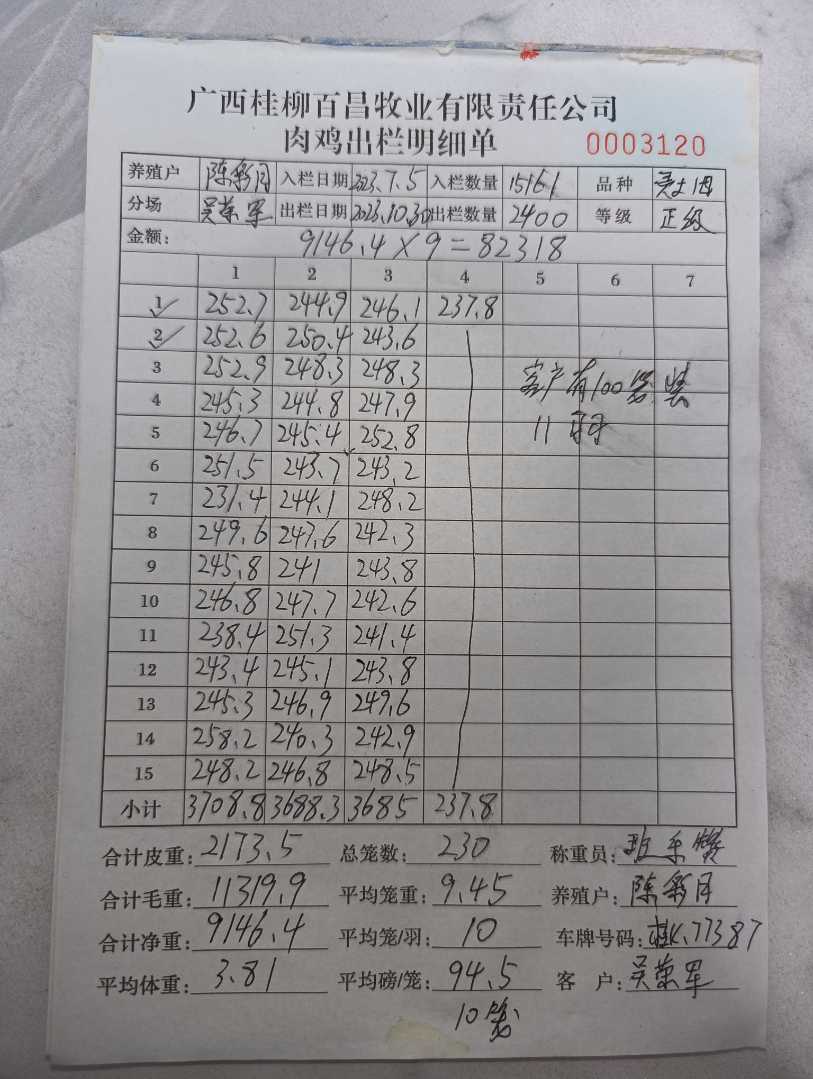 广西桂柳百昌牧业有限责任公司
肉鸡出栏明细单 0003120
养殖户 陈彩月 入栏日期 2023.7.5 入栏数量 15161 品种
分场 吴荣军 出栏日期 2023.10.30 出栏数量 2400 等级 正级
金额: 9146.4×9=82318
1 2 3 4 5 6 7
1 252.7 244.9 246.1 237.8
2 252.6 250.4 243.6
3 252.9 248.3 248.3 客户有100笼装
4 245.3 244.8 247.9
5 246.7 245.4 252.8 11羽
6 251.5 243.7 243.2
7 231.4 244.1 248.2
8 249.6 247.6 242.3
9 245.8 241 243.8
10 246.8 247.7 242.6
11 238.4 251.3 241.4
12 243.4 245.1 243.8
13 245.3 246.9 249.6
14 258.2 240.3 242.9
15 248.2 246.8 248.5
小计 3708.8 3688.3 3685 237.8
合计皮重: 2173.5 总笼数: 230 称重员:
合计毛重: 11319.9 平均笼重: 9.45 养殖户: 陈彩月
合计净重: 9146.4 平均笼/羽: 10 车牌号码: 桂K.77387
平均体重: 3.81 平均磅/笼: 94.5 客 户: 吴荣军
10笼